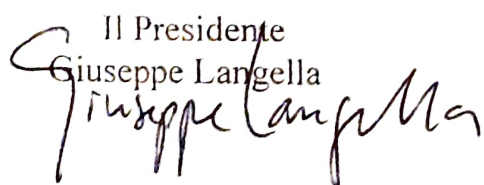 Il Presidente
Giuseppe Langella
Giuseppe Langella